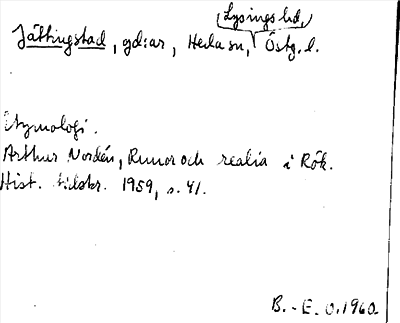 (Lysings hd,)
Jättingstad, gd:ar, Heda sn, Östg. l.
Etymologi.
Arthur Nordén, Runor och realia i Rök.
Hist. tidskr. 1959, s. 41.
B.-E. O. 1960.